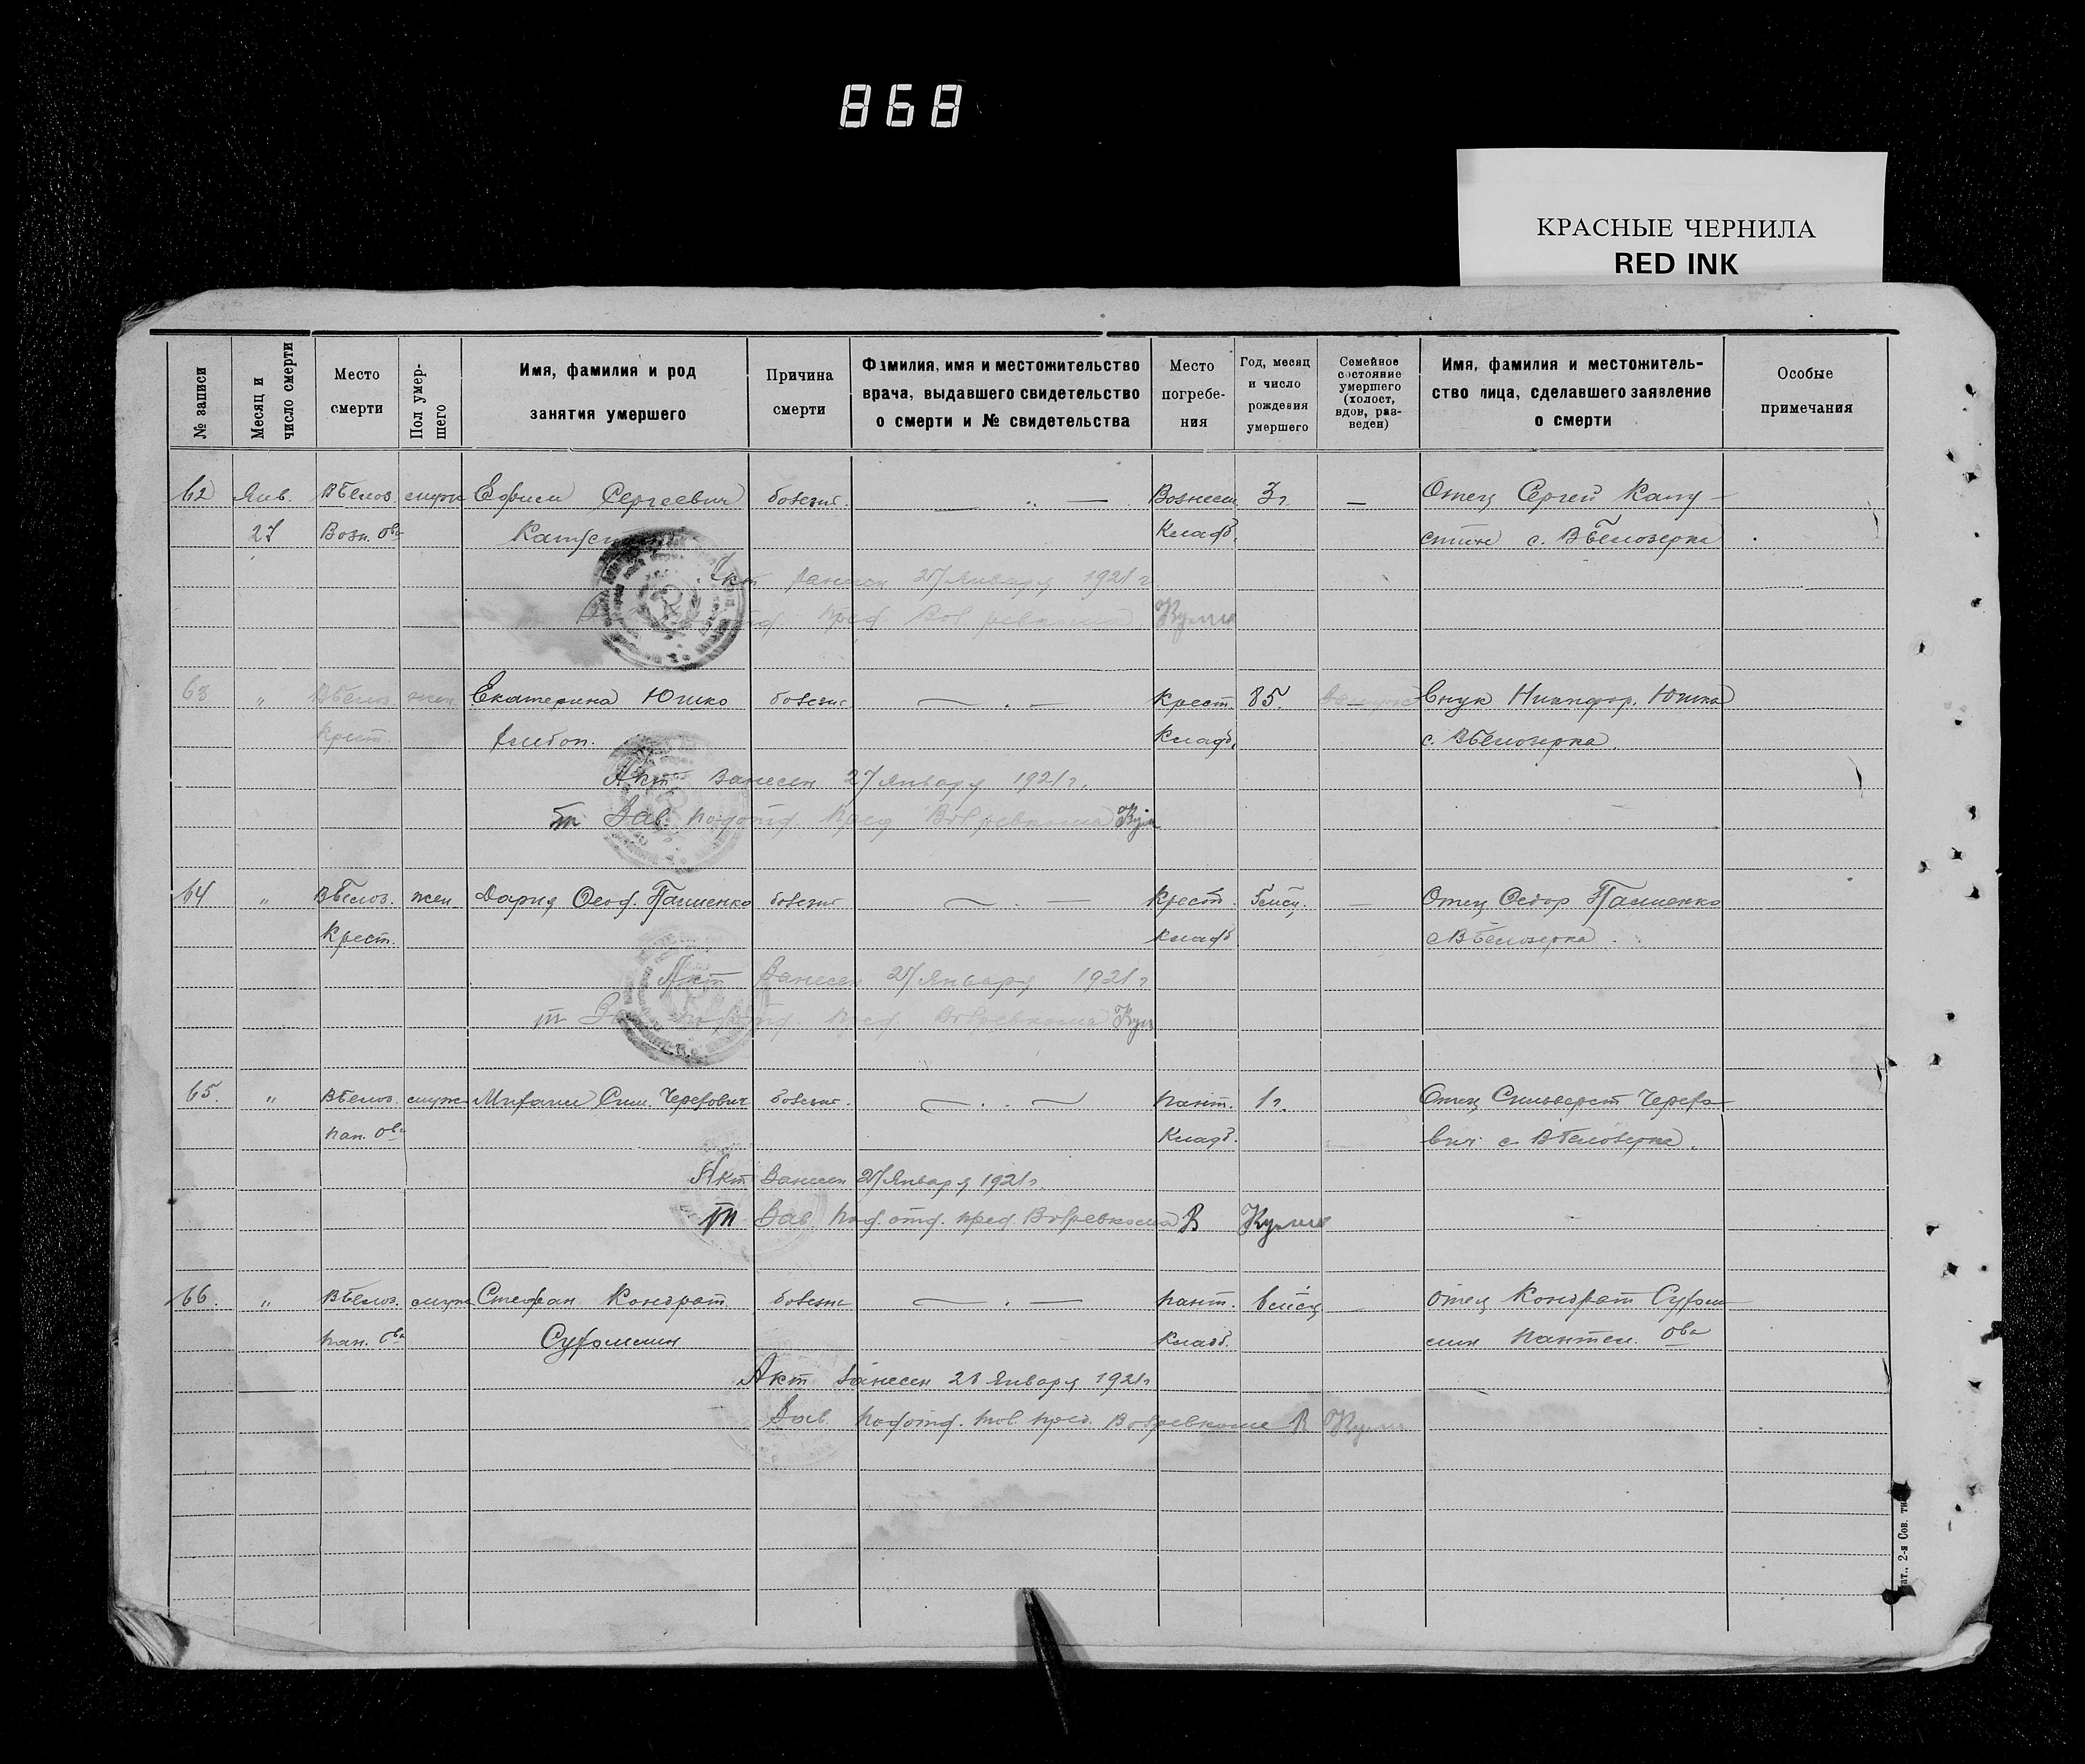 868
КРАСНЫЕ ЧЕРНИЛА
RED INK
№ записи
Месяц и число смерти
Место смерти
Пол умер-шего
Имя, фамилия и род занятия умершего
Причина смерти
Фамилия, имя и местожительство врача, выдавшего свидетельство о смерти и № свидетельства
Место погребе-ния
Год, месяц и число рождения умершего
Семейное состояние умершего (холост, вдов, раз-веден)
Имя, фамилия и местожитель-ство лица, сделавшего заявление о смерти
Особые примечания
62 Янв. ВБелоз. муж Ефим Сергеевич болезни. — Вознесен. 3 г. — Отец Сергей Капу-
27 Возн. Ова Капустин Кладб. стин с. ВБелозерка
Акт занесен 27 Января 1921 г.
пред Вол ревкома
63 " ВБелоз. жен. Екатерина Юшко болезни — Крест. 85. — Внук Никифор. Юшко
Крест. Кладб. с. ВБелозерка.
Акт занесен 27 Января 1921 г.
Зав. подотд. пред Волревкома
64 " ВБелоз. жен Дария Феод. Пащенко болезни — Крест. 5 мес. — Отец Федор Пащенко
Крест. Кладб с ВБелозерка.
Акт занесен 27 Января 1921 г
пред. Волревкома
65. " ВБелоз. муж Михаил Сил. Черевович болезни. — Пант. 1 г. Отец Сильверст Черево-
Пан. Ова Кладб. вич с ВБелозерка.
Акт Занесен 27 Января 1921 г.
Зав. Подотд. пред. Волревкома В
66. " ВБелоз. муж Стефан Кондрат. болезни — Пант. 6 мес — Отец Кондрат Сухом-
Пан. Ова Сухомлин Кладб. лин Пантел. Ова
Акт занесен 28 Января 1921 г
Зав. подотд. пред. Волревкома В
2-я Сов. ти